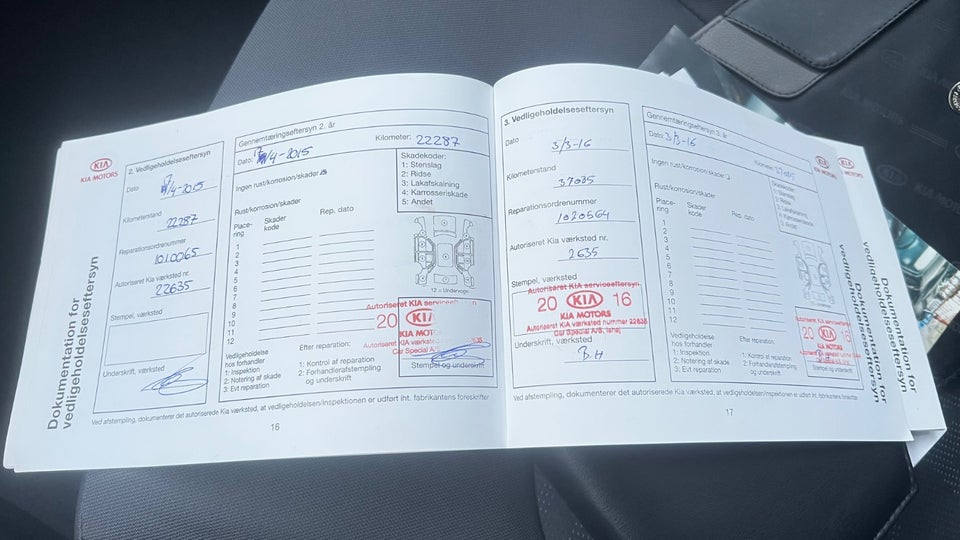 Dokumentation for
vedligeholdelseseftersyn
KIA
KIA MOTORS
2. Vedligeholdelseseftersyn
Dato
/4-2015
Kilometerstand
22287
Reparationsordrenummer
1010065
Autoriseret Kia værksted nr.
22635
Stempel, værksted
Underskrift, værksted
Gennemtæringseftersyn 2. år
Dato: /4-2015
Kilometer: 22287
Ingen rust/korrosion/skader
Rust/korrosion/skader
Place-
ring
Skader
kode
Rep. dato
1
2
3
4
5
6
7
8
9
10
11
12
Skadekoder:
1: Stenslag
2: Ridse
3: Lakafskalning
4: Karrosseriskade
5: Andet
12 = Undervogn
Autoriseret KIA serviceeftersyn
20 KIA
KIA MOTORS
Autoriseret KIA værksted
Car Special A/S
Stempel og underskrift
Vedligeholdelse
hos forhandler
1: Inspektion.
2: Notering af skade
3: Evt reparation
Efter reparation:
1: Kontrol af reparation
2: Forhandlerafstempling
og underskrift
Ved afstempling, dokumenterer det autoriserede Kia værksted, at vedligeholdelsen/inspektionen er udført iht. fabrikantens forskrifter
16
3. Vedligeholdelseseftersyn
Dato
3/3-16
Kilometerstand
37035
Reparationsordrenummer
1020564
Autoriseret Kia værksted nr.
2635
Stempel, værksted
Autoriseret KIA serviceeftersyn
20 KIA 16
KIA MOTORS
Autoriseret KIA værksted nummer 22635
Car Special A/S,
Underskrift, værksted
B.H
Gennemtæringseftersyn 3. år
Dato: 3/3-16
Kilometer: 37035
Ingen rust/korrosion/skader
Rust/korrosion/skader
Place-
ring
Skader
kode
Rep. dato
1
2
3
4
5
6
7
8
9
10
11
12
Skadekoder:
1: Stenslag
2: Ridse
3: Lakafskalning
4: Karrosseriskade
5: Andet
Autoriseret KIA serviceeftersyn
20 KIA 16
KIA MOTORS
Stempel og underskrift
Vedligeholdelse
hos forhandler
1: Inspektion.
2: Notering af skade
3: Evt reparation
Efter reparation:
1: Kontrol af reparation
2: Forhandlerafstempling
og underskrift
Ved afstempling, dokumenterer det autoriserede Kia værksted, at vedligeholdelsen/inspektionen er udført iht. fabrikantens forskrifter
17
KIA
KIA MOTORS
Dokumentation for
vedligeholdelseseftersyn
Dokumentation for
vedligeholdelseseftersyn